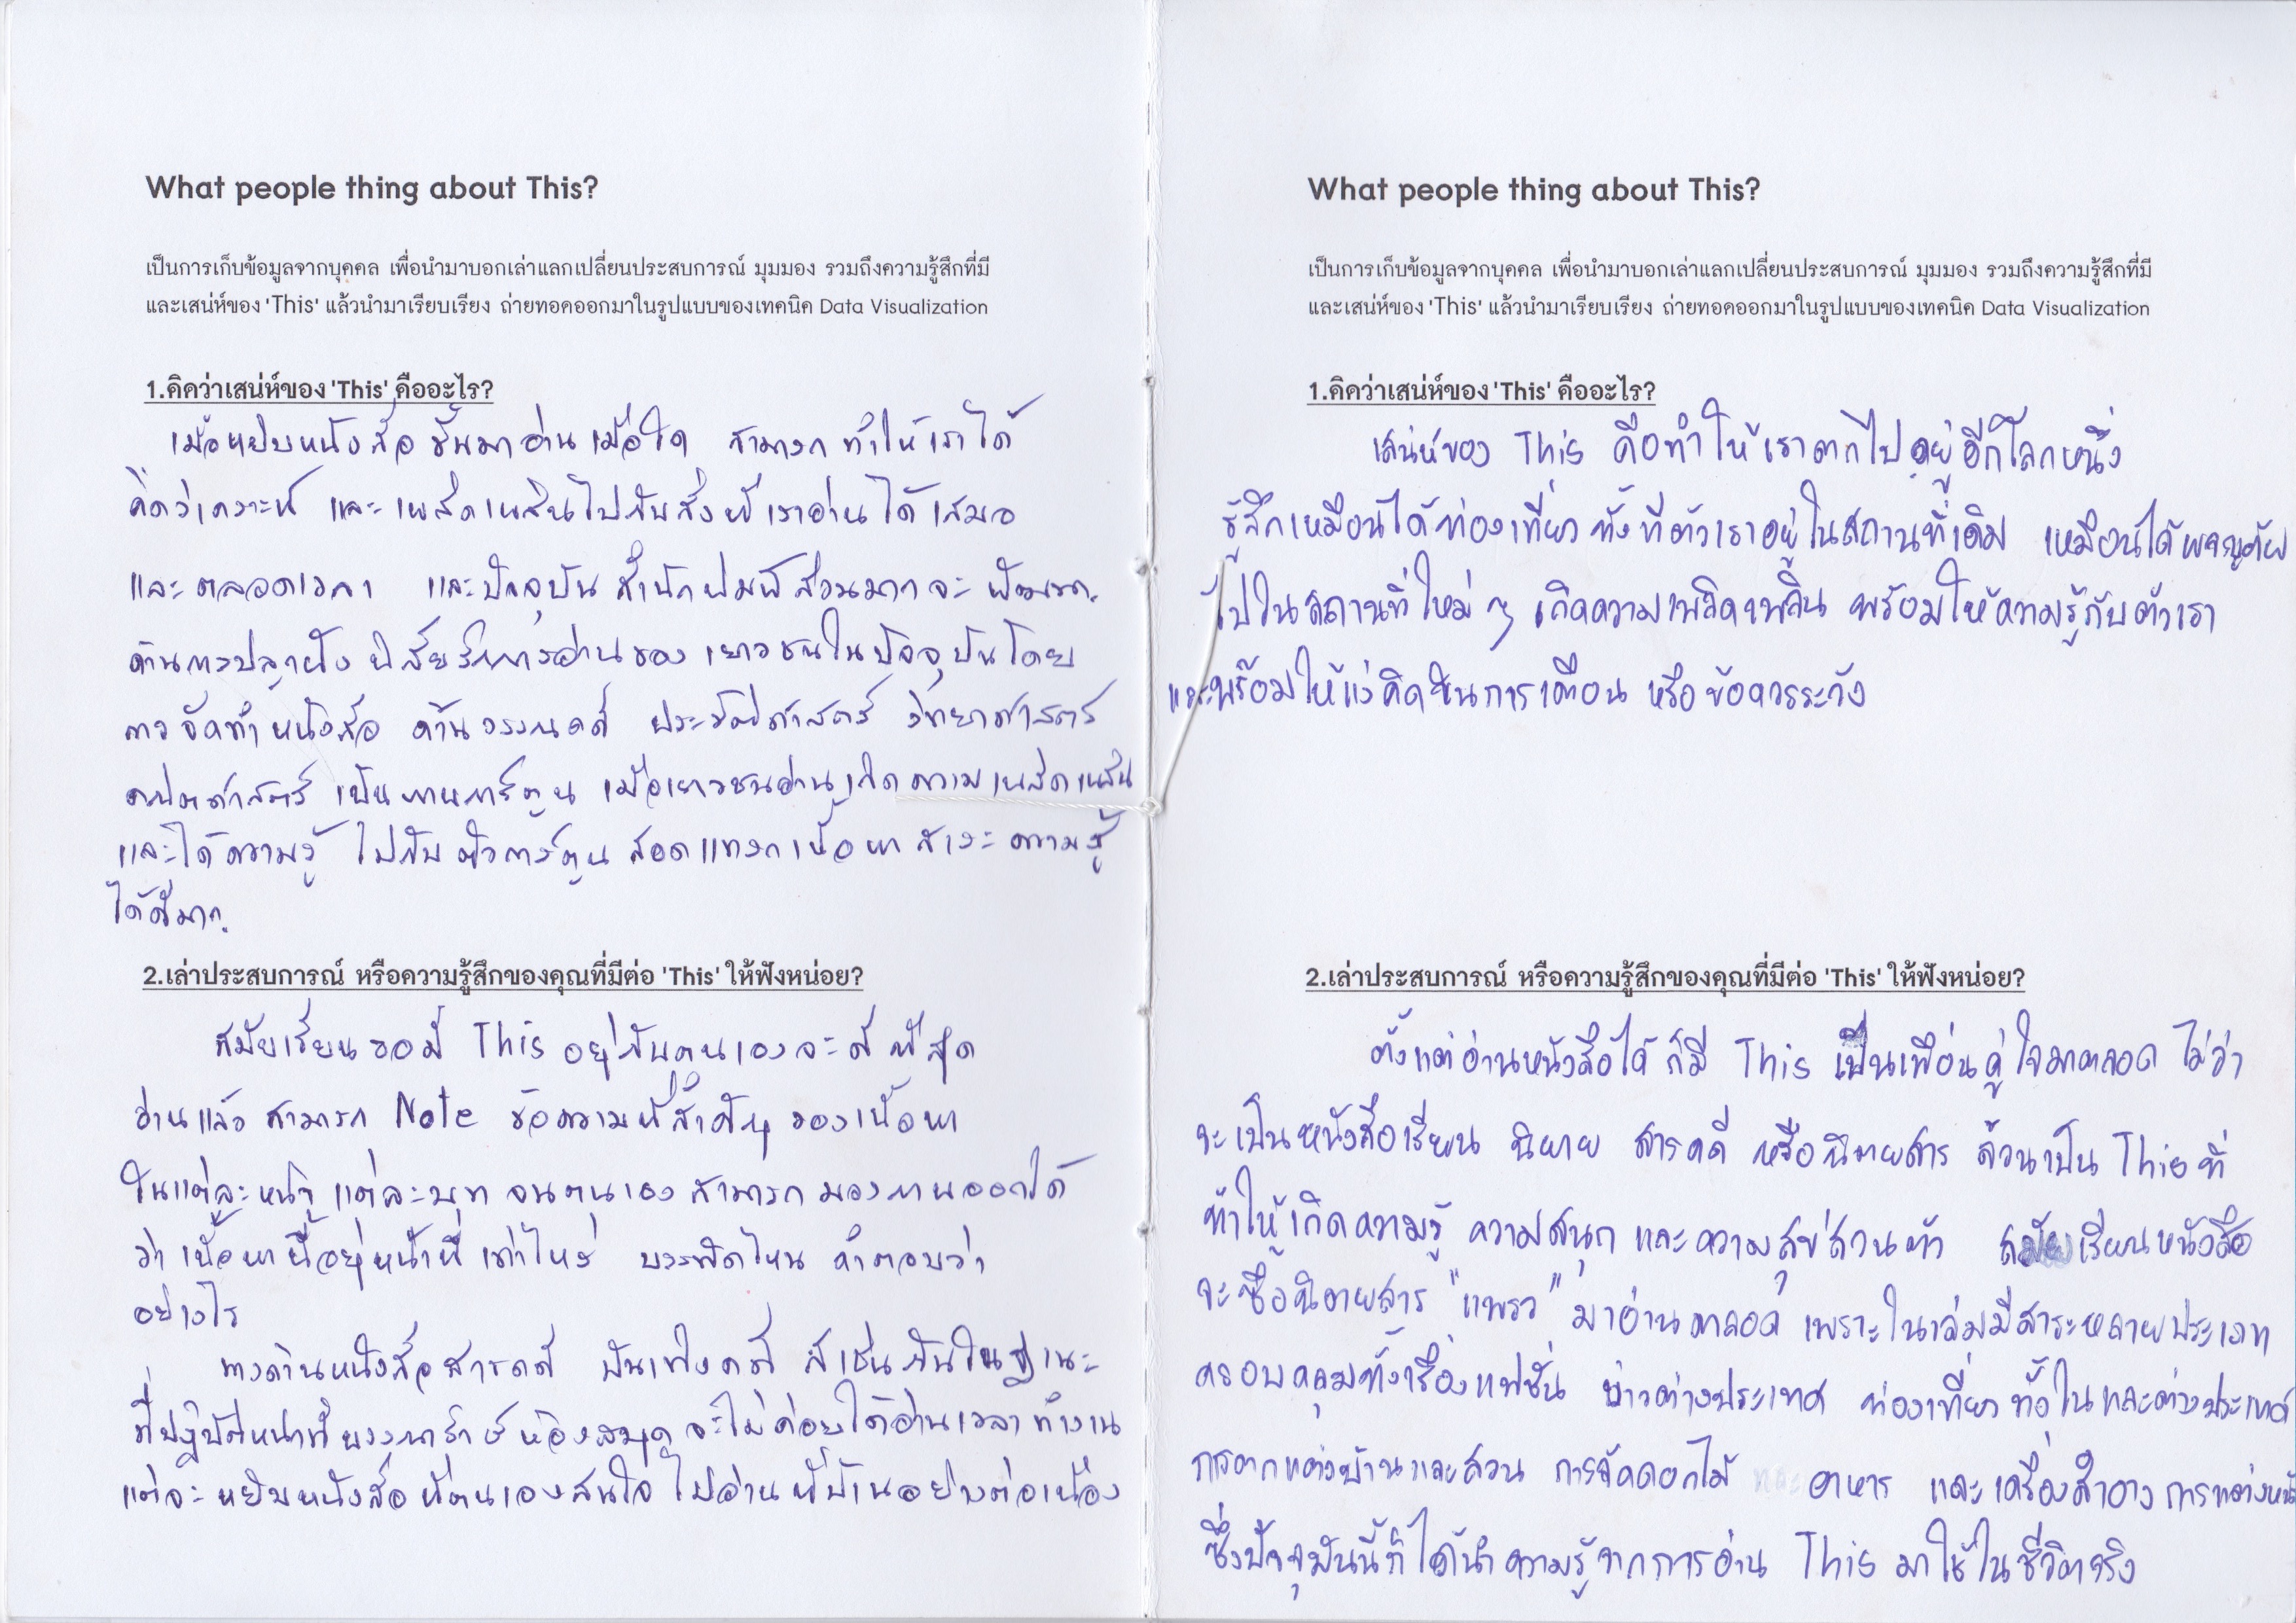 What people thing about This?
เป็นการเก็บข้อมูลจากบุคคล เพื่อนำมาบอกเล่าแลกเปลี่ยนประสบการณ์ มุมมอง รวมถึงความรู้สึกที่มี
และเสน่ห์ของ 'This' แล้วนำมาเรียบเรียง ถ่ายทอดออกมาในรูปแบบของเทคนิค Data Visualization
1.คิดว่าเสน่ห์ของ 'This' คืออะไร?
เมื่อหยิบหนังสือขึ้นมาอ่านเมื่อใด สามารถทำให้เราได้
คิดวิเคราะห์ และเพลิดเพลินไปกับสิ่งที่เราอ่านได้เสมอ
และตลอดเวลา และปัจจุบันสำนักพิมพ์ส่วนมากจะพัฒนา
ด้านการปลูกฝังนิสัยรักการอ่านของเยาวชนในปัจจุบันโดย
การจัดทำหนังสือ ด้านวรรณคดี ประวัติศาสตร์ วิทยาศาสตร์
คณิตศาสตร์ เป็นภาพการ์ตูน เมื่อเยาวชนอ่านเกิดความเพลิดเพลิน
และได้ความรู้ ไปกับตัวการ์ตูน สอดแทรกเนื้อหาสาระความรู้
ได้ดีมาก.
2.เล่าประสบการณ์ หรือความรู้สึกของคุณที่มีต่อ 'This' ให้ฟังหน่อย?
สมัยเรียนขอมี This อยู่กับตนเองจะดีที่สุด
อ่านแล้วสามารถ Note ข้อความที่สำคัญของเนื้อหา
ในแต่ละหน้า แต่ละบท จนตนเองสามารถมองภาพออกได้
ว่าเนื้อหานี้อยู่หน้าที่เท่าไหร่ บรรทัดไหน คำตอบว่า
อย่างไร
ทางด้านหนังสือสารคดี บันเทิงคดี ก็เช่นกันในฐานะ
ที่ปฏิบัติหน้าที่บรรณารักษ์ห้องสมุด จะไม่ค่อยได้อ่านเวลาทำงาน
แต่จะหยิบหนังสือที่ตนเองสนใจไปอ่านที่บ้านอย่างต่อเนื่อง
What people thing about This?
เป็นการเก็บข้อมูลจากบุคคล เพื่อนำมาบอกเล่าแลกเปลี่ยนประสบการณ์ มุมมอง รวมถึงความรู้สึกที่มี
และเสน่ห์ของ 'This' แล้วนำมาเรียบเรียง ถ่ายทอดออกมาในรูปแบบของเทคนิค Data Visualization
1.คิดว่าเสน่ห์ของ 'This' คืออะไร?
เสน่ห์ของ This คือทำให้เราตกไปอยู่อีกโลกหนึ่ง
รู้สึกเหมือนได้ท่องเที่ยว ทั้งที่ตัวเราอยู่ในสถานที่เดิม เหมือนได้ผจญภัย
ไปในสถานที่ใหม่ ๆ เกิดความเพลิดเพลิน พร้อมให้ความรู้กับตัวเรา
และพร้อมให้แง่คิดในการเตือน หรือข้อควรระวัง
2.เล่าประสบการณ์ หรือความรู้สึกของคุณที่มีต่อ 'This' ให้ฟังหน่อย?
ตั้งแต่อ่านหนังสือได้ ก็มี This เป็นเพื่อนคู่ใจมาตลอด ไม่ว่า
จะเป็นหนังสือเรียน นิยาย สารคดี หรือนิตยสาร ล้วนเป็น This ที่
ทำให้เกิดความรู้ ความสนุก และความสุขส่วนตัว สมัยเรียนหนังสือ
จะซื้อนิตยสาร "แพรว" มาอ่านตลอด เพราะในเล่มมีสาระหลายประเภท
ครอบคลุมทั้งเรื่องแฟชั่น ข่าวต่างประเทศ ท่องเที่ยว ทั้งในและต่างประเทศ
การตกแต่งบ้านและสวน การจัดดอกไม้ อาหาร และเครื่องสำอาง การแต่งหน้า
ซึ่งปัจจุบันนี้ก็ได้นำความรู้จากการอ่าน This มาใช้ในชีวิตจริง